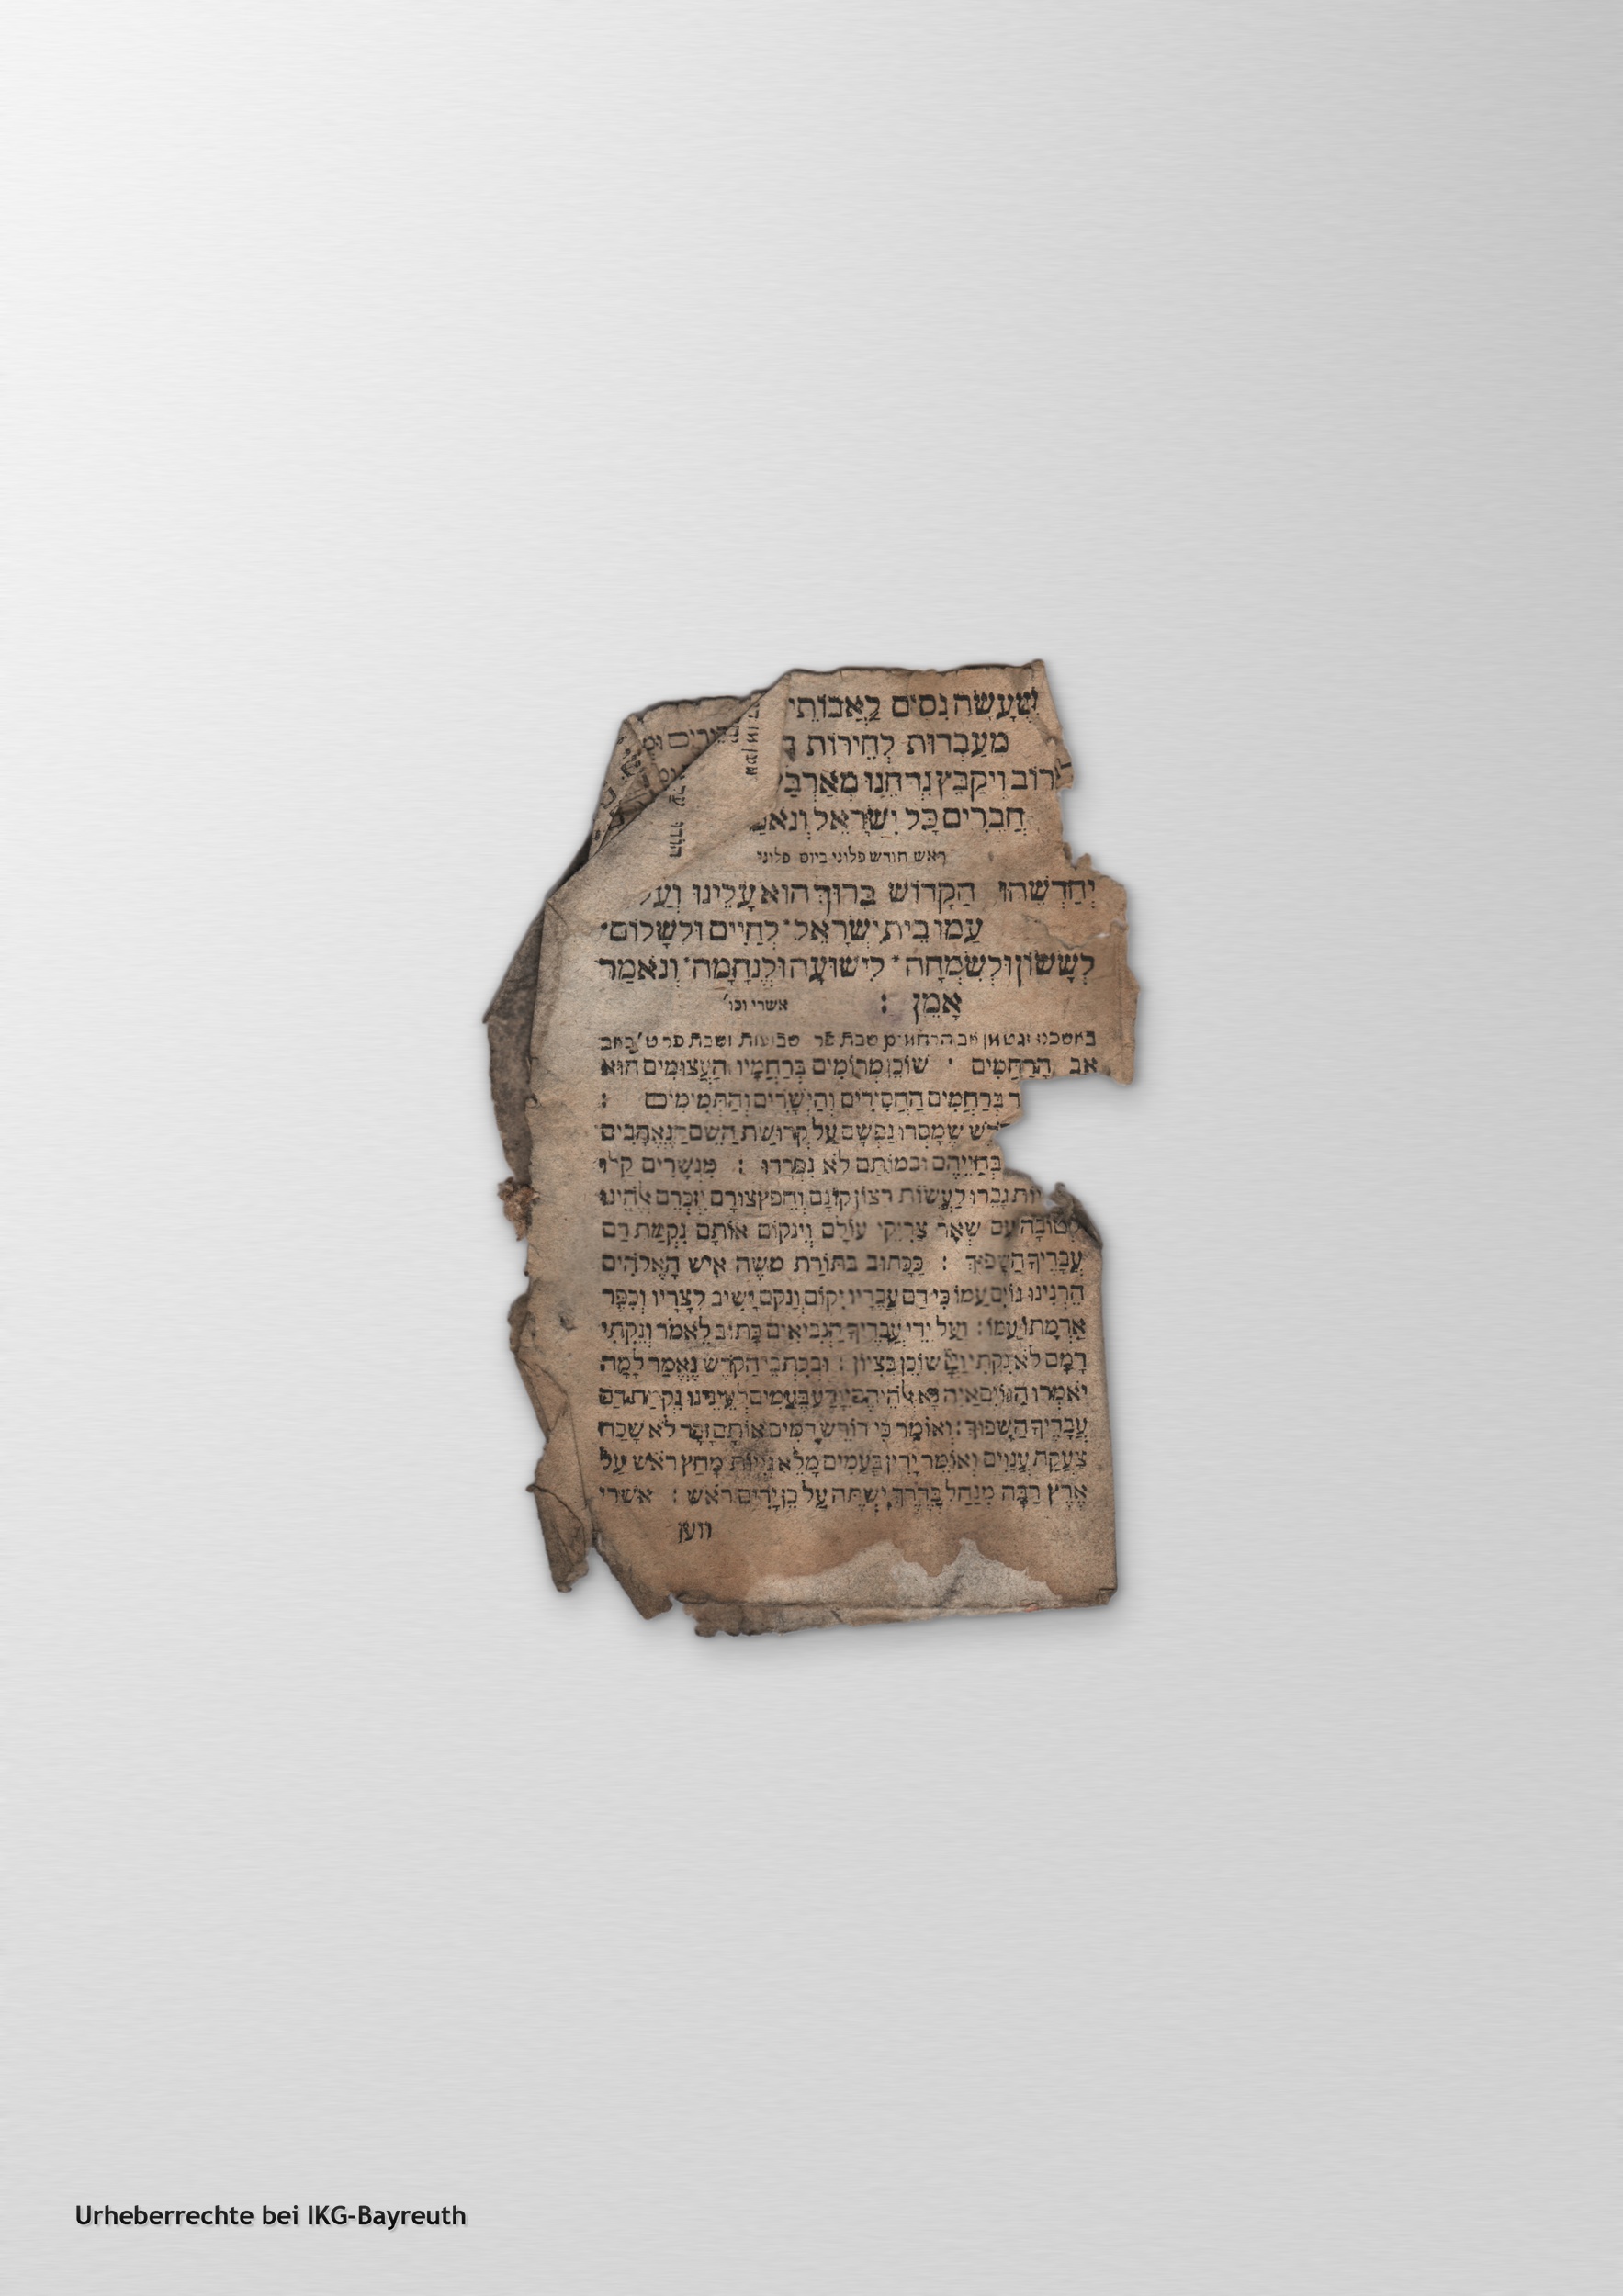 שֶׁעָשָׂה נִסִּים לַאֲבוֹתֵי
מֵעַבְדוּת לְחֵירוּת
רוֹב וִיקַבֵּץ נִדָּחֵנוּ מֵאַרְבַּ
חֲבֵרִים כָּל יִשְׂרָאֵל וְנֹאמַ
ראש חודש פלוני ביום פלוני
יְחַדְּשֵׁהוּ הַקָּדוֹשׁ בָּרוּךְ הוּא עָלֵינוּ וְעַל
עַמּוֹ בֵּית יִשְׂרָאֵל לְחַיִּים וּלְשָׁלוֹם
לְשָׂשׂוֹן וּלְשִׂמְחָה לִישׁוּעָה וּלְנֶחָמָה וְנֹאמַר
אָמֵן : אשרי וכו'
אב הָרַחֲמִים שׁוֹכֵן מְרוֹמִים בְּרַחֲמָיו הָעֲצוּמִים הוּא
ד בְּרַחֲמִים הַחֲסִידִים וְהַיְשָׁרִים וְהַתְּמִימִים :
דֶשׁ שֶׁמָּסְרוּ נַפְשָׁם עַל קְדוּשַׁת הַשֵּׁם הַנֶּאֱהָבִים
בְּחַיֵּיהֶם וּבְמוֹתָם לֹא נִפְרָדוּ : מִנְּשָׁרִים קַלּוּ
יוֹת גָּבֵרוּ לַעֲשׂוֹת רְצוֹן קוֹנָם וְחֵפֶץ צוּרָם יִזְכְּרֵם אֱלֹהֵינוּ
לְטוֹבָה עִם שְׁאָר צַדִּיקֵי עוֹלָם וְיִנְקוֹם אוֹתָם נִקְמַת דַּם
עֲבָדֶיךָ הַשָּׁפוּךְ : כַּכָּתוּב בְּתוֹרַת מֹשֶׁה אִישׁ הָאֱלֹהִים
הַרְנִינוּ גוֹיִם עַמּוֹ כִּי דַם עֲבָדָיו יִקּוֹם וְנָקָם יָשִׁיב לְצָרָיו וְכִפֶּר
אַדְמָתוֹ עַמּוֹ : וְעַל יְדֵי עֲבָדֶיךָ הַנְּבִיאִים כָּתוּב לֵאמֹר וְנִקֵּתִי
דָּמָם לֹא נִקֵּתִי וַיָי שׁוֹכֵן בְּצִיּוֹן : וּבְכִתְבֵי הַקֹּדֶשׁ נֶאֱמַר לָמָּה
יֹאמְרוּ הַגּוֹיִם אַיֵּה נָא אֱלֹהֵיהֶם יִוָּדַע בָּעַמִּים לְעֵינֵינוּ נִקְמַת דַּם
עֲבָדֶיךָ הַשָּׁפוּךְ : וְאוֹמֵר כִּי דוֹרֵשׁ דָּמִים אוֹתָם זָכָר לֹא שָׁכַח
צַעֲקַת עֲנָוִים וְאוֹמֵר יָדִין בָּעַמִּים מָלֵא גְוִיּוֹת מָחַץ רֹאשׁ עַל
אֶרֶץ רַבָּה מִנַּחַל בַּדֶּרֶךְ יִשְׁתֶּה עַל כֵּן יָרִים רֹאשׁ : אשרי
ווען
Urheberrechte bei IKG-Bayreuth